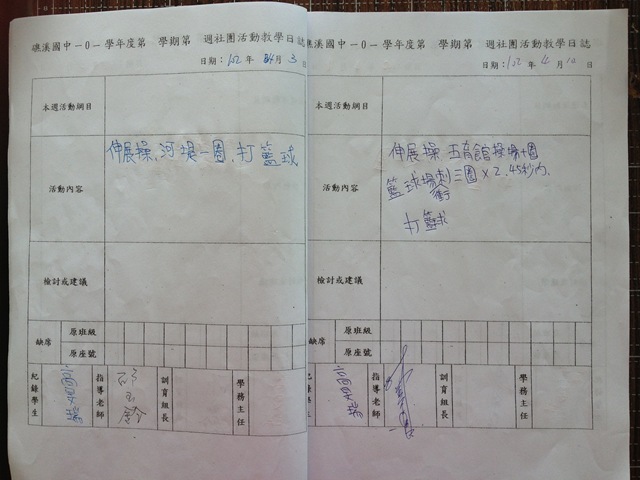 礁溪國中一0一學年度第 學期第 週社團活動教學日誌
日期:102年 月3日
本週活動綱目
活動內容
伸展操,河堤一圈,打籃球
檢討或建議
缺席
原班級
原座號
紀錄學生
指導老師
訓育組長
學務主任
礁溪國中一0一學年度第 學期第 週社團活動教學日誌
日期:102年4月10日
本週活動綱目
活動內容
伸展操 五育館操場十圈
籃球場衝刺三圈×2,45秒內,
打籃球
檢討或建議
缺席
原班級
原座號
紀錄學生
指導老師
訓育組長
學務主任